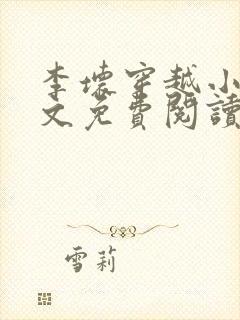 李壞穿越小
文免費閱讀
雪莉